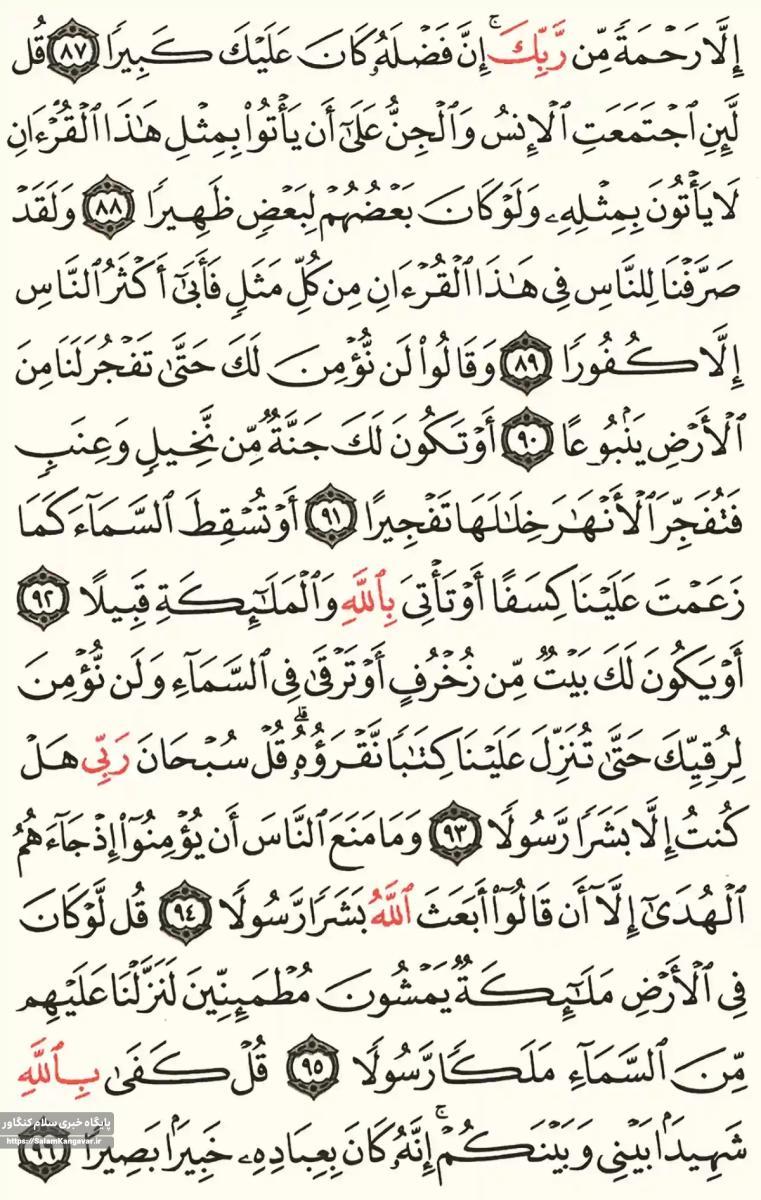 إِلَّا رَحۡمَةٗ مِّن رَّبِّكَۚ إِنَّ فَضۡلَهُۥ كَانَ عَلَيۡكَ كَبِيرٗا ٨٧ قُل
لَّئِنِ ٱجۡتَمَعَتِ ٱلۡإِنسُ وَٱلۡجِنُّ عَلَىٰٓ أَن يَأۡتُواْ بِمِثۡلِ هَٰذَا ٱلۡقُرۡءَانِ
لَا يَأۡتُونَ بِمِثۡلِهِۦ وَلَوۡ كَانَ بَعۡضُهُمۡ لِبَعۡضٖ ظَهِيرٗا ٨٨ وَلَقَدۡ
صَرَّفۡنَا لِلنَّاسِ فِي هَٰذَا ٱلۡقُرۡءَانِ مِن كُلِّ مَثَلٖ فَأَبَىٰٓ أَكۡثَرُ ٱلنَّاسِ
إِلَّا كُفُورٗا ٨٩ وَقَالُواْ لَن نُّؤۡمِنَ لَكَ حَتَّىٰ تَفۡجُرَ لَنَا مِنَ
ٱلۡأَرۡضِ يَنۢبُوعًا ٩٠ أَوۡ تَكُونَ لَكَ جَنَّةٞ مِّن نَّخِيلٖ وَعِنَبٖ
فَتُفَجِّرَ ٱلۡأَنۡهَٰرَ خِلَٰلَهَا تَفۡجِيرًا ٩١ أَوۡ تُسۡقِطَ ٱلسَّمَآءَ كَمَا
زَعَمۡتَ عَلَيۡنَا كِسَفًا أَوۡ تَأۡتِيَ بِٱللَّهِ وَٱلۡمَلَٰٓئِكَةِ قَبِيلًا ٩٢
أَوۡ يَكُونَ لَكَ بَيۡتٞ مِّن زُخۡرُفٍ أَوۡ تَرۡقَىٰ فِي ٱلسَّمَآءِ وَلَن نُّؤۡمِنَ
لِرُقِيِّكَ حَتَّىٰ تُنَزِّلَ عَلَيۡنَا كِتَٰبٗا نَّقۡرَؤُهُۥۗ قُلۡ سُبۡحَانَ رَبِّي هَلۡ
كُنتُ إِلَّا بَشَرٗا رَّسُولٗا ٩٣ وَمَا مَنَعَ ٱلنَّاسَ أَن يُؤۡمِنُوٓاْ إِذۡ جَآءَهُمُ
ٱلۡهُدَىٰٓ إِلَّآ أَن قَالُوٓاْ أَبَعَثَ ٱللَّهُ بَشَرٗا رَّسُولٗا ٩٤ قُل لَّوۡ كَانَ
فِي ٱلۡأَرۡضِ مَلَٰٓئِكَةٞ يَمۡشُونَ مُطۡمَئِنِّينَ لَنَزَّلۡنَا عَلَيۡهِم
مِّنَ ٱلسَّمَآءِ مَلَكٗا رَّسُولٗا ٩٥ قُلۡ كَفَىٰ بِٱللَّهِ
شَهِيدَۢا بَيۡنِي وَبَيۡنَكُمۡۚ إِنَّهُۥ كَانَ بِعِبَادِهِۦ خَبِيرَۢا بَصِيرٗا ٩٦
پایگاه خبری سلام کنگاور
https://SalamKangavar.ir